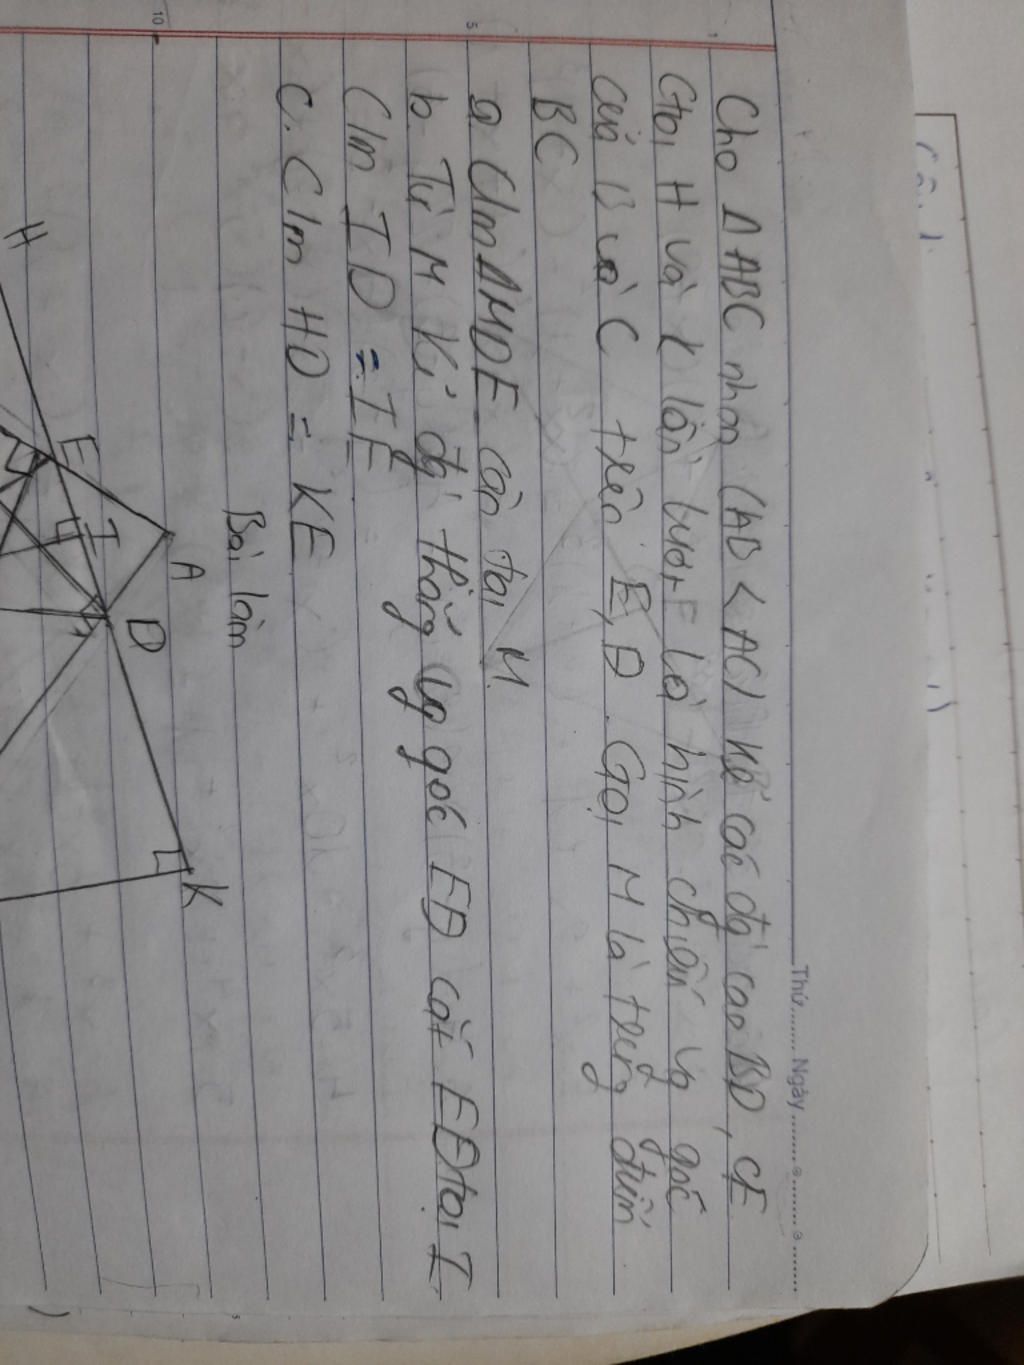 Thứ........ Ngày.........
Cho Δ ABC nhọn (AB < AC) kẻ các đg cao BD, CE
Gọi H và K lần lượt là hình chiếu vg góc
của B và C trên E, D. Gọi M là trung điểm
BC
a. C/m ΔMDE cân tại M.
b. Từ M kẻ đg thẳng vg góc ED cắt ED tại I
C/m ID = IE
c. C/m HD = KE
Bài làm
A
K
D
I
E
H
1
5
10